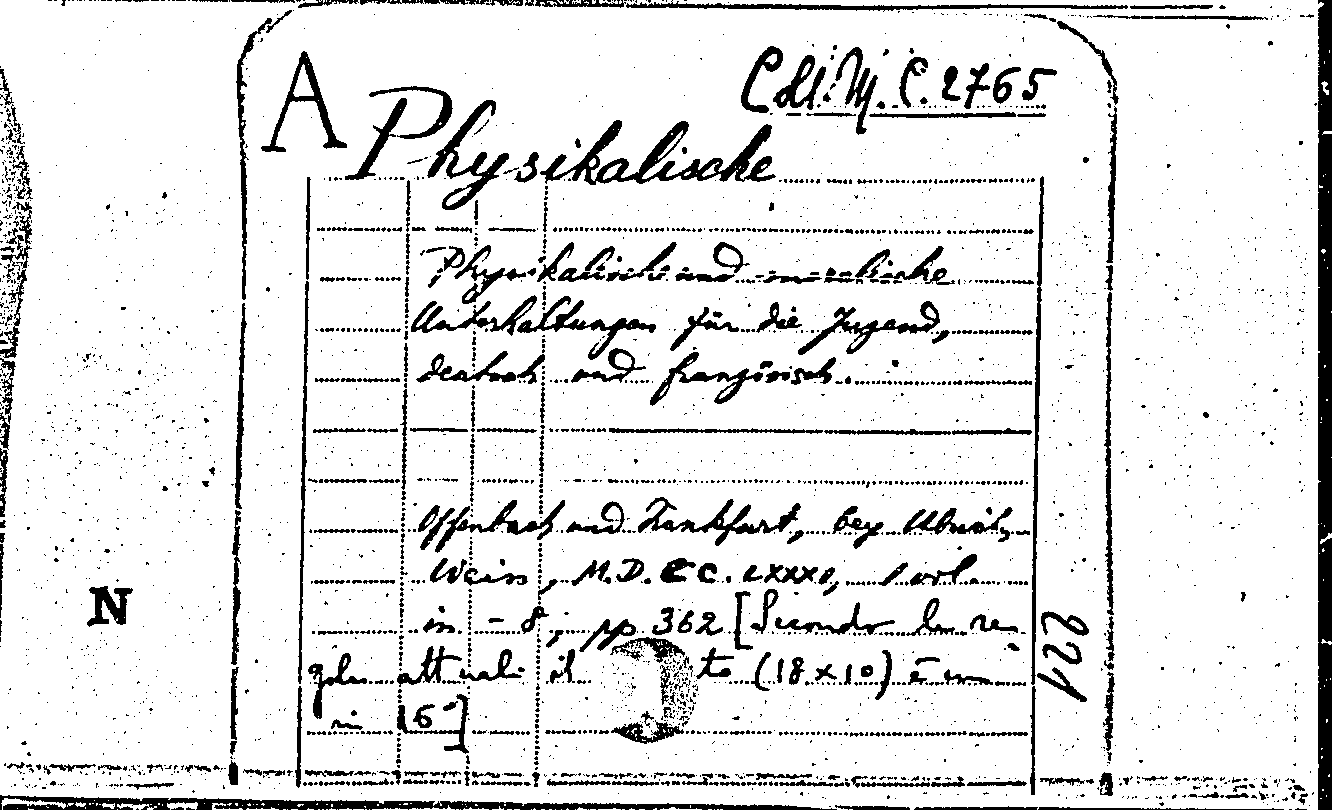 A
Coll. M. C. 2765
Physikalische
Physikalische und moralische
Unterhaltungen für die Jugend,
deutsch und französisch.
Offenbach und Frankfurt, bey Ulrich
Weiss, M.D.CC.LXXXI, 1 vol.
in - 8, pp 362 [Secondo le re
gole attuali il to (18 x 10) è un
in 16°]
N
221